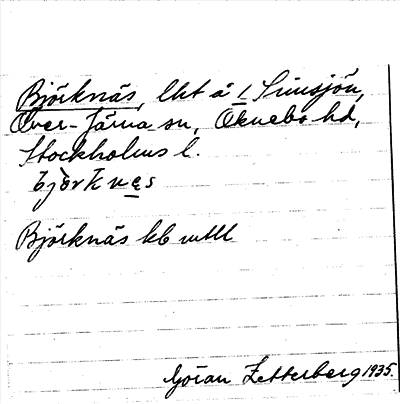 Björknäs, lht å 1 Simsjön,
Över-Järna sn, Öknebo hd,
Stockholms l.
bjòrknes
Björknäs kb mtll
Göran Zetterberg 1935.